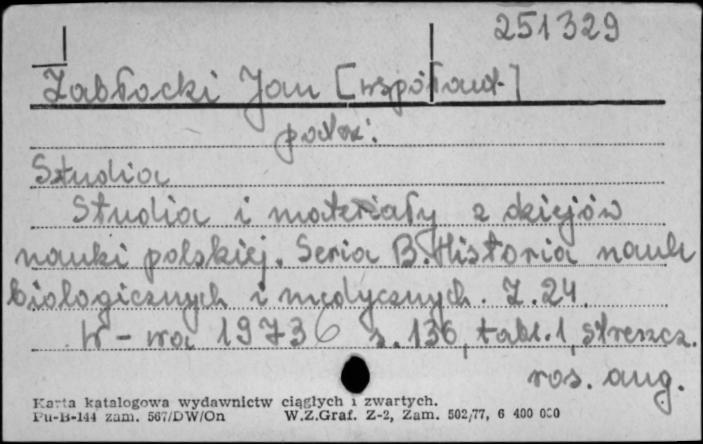 251329
Zabłocki Jan [współaut.]
patrz:
Studia
Studia i materiały z dziejów
nauki polskiej. Seria B. Historia nauk
biologicznych i medycznych. Z. 24.
W-wa 1973 s. 136, tabl. 1, streszcz.
ros. ang.
Karta katalogowa wydawnictw ciągłych i zwartych.
Pu-B-144 zam. 567/DW/On W.Z.Graf. Z-2, Zam. 502/77, 6 400 000